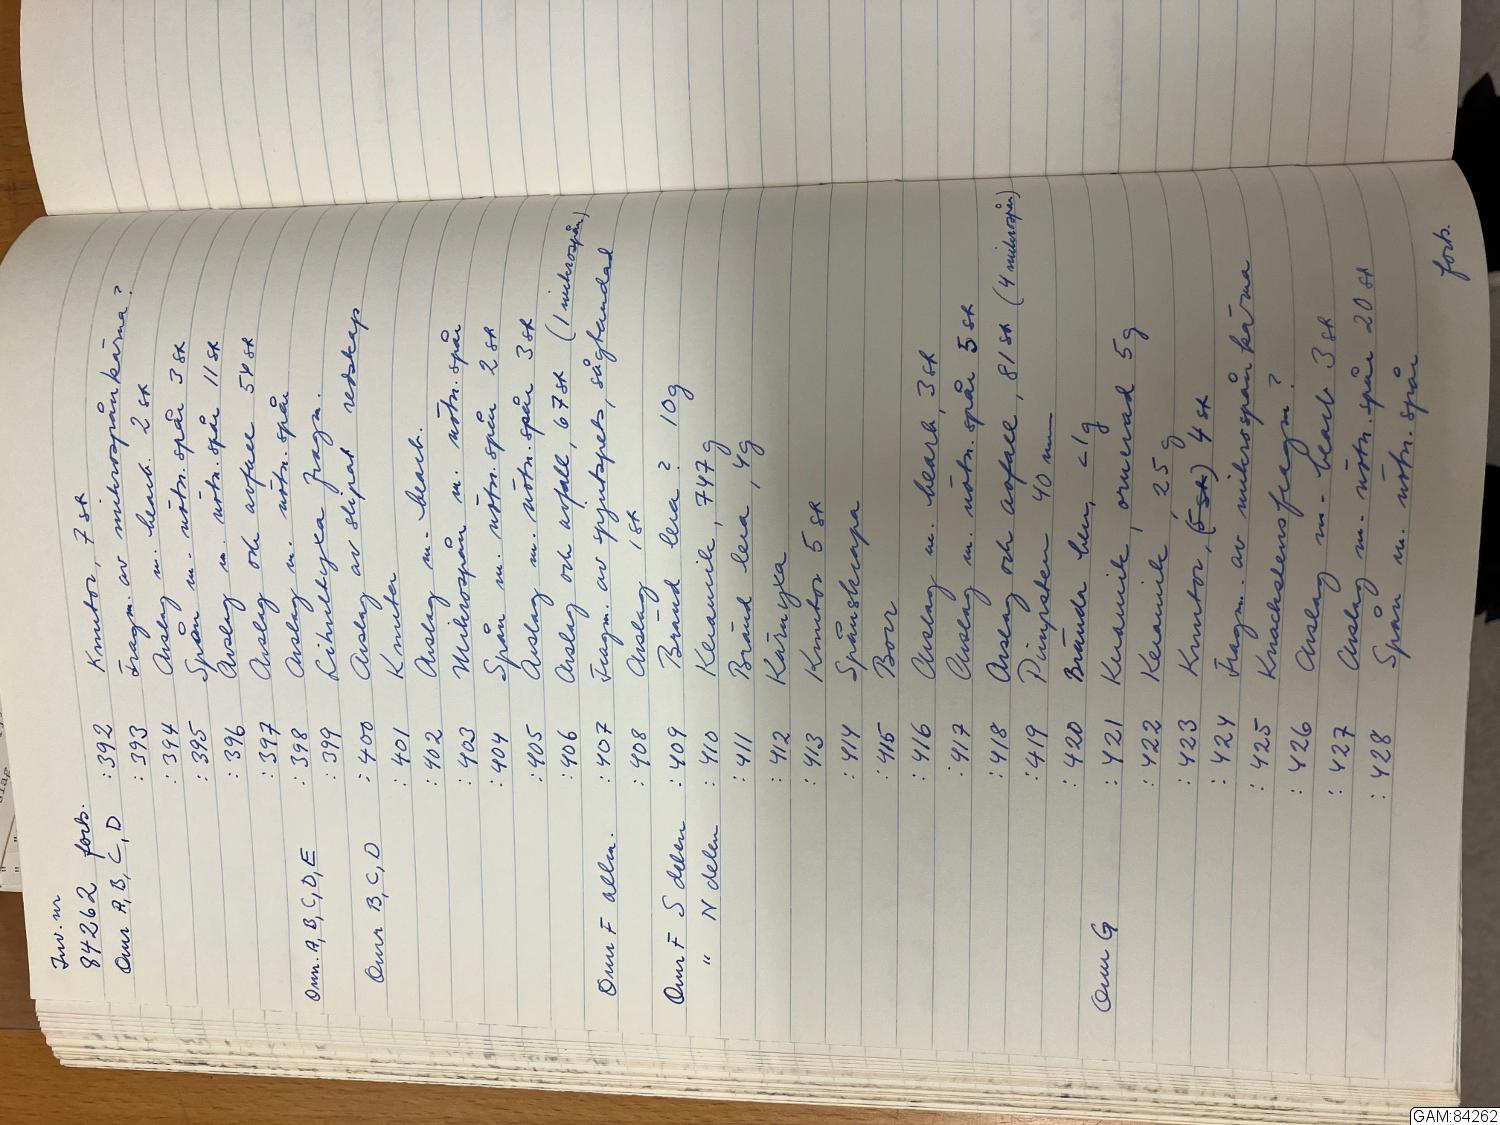 Inv. nr
84262 forts. :392 Knutor, 7 st
Omr A, B, C, D :393 Fragm. av mikrospånkärna?
:394 Avslag m. bearb. 2 st
:395 Spån m. nötn.spår 3 st
:396 Avslag m. nötn.spår 11 st
:397 Avslag och avfall 54 st
:398 Avslag m. nötn.spår
Omr. A, B, C, D, E :399 Lihultyxa fragm.
:400 Avslag av slipat redskap
Omr B, C, D :401 Knuta
:402 Avslag m. bearb.
:403 Mikrospån m. nötn.spår
:404 Spån m. nötn.spår 2 st
:405 Avslag m. nötn.spår 3 st
:406 Avslag och avfall, 67 st (1 mikrospån)
Omr F allm. :407 Fragm. av synteyxa, såghandad
:408 Avslag 1 st
Omr F S delen :409 Bränd lera? 10 g
" N delen :410 Keramik, 747 g
:411 Bränd lera, 4 g
:412 Kärnyxa
:413 Knutor 5 st
:414 Spånskrapa
:415 Borr
:416 Avslag m. bearb, 3 st
:417 Avslag m. nötn.spår 5 st
:418 Avslag och avfall, 81 st (4 mikrospån)
:419 Pimpsten 40 mm
:420 Brända ben, <1 g
Omr G :421 Keramik, ornerad 5 g
:422 Keramik, 25 g
:423 Knutor, (5 st) 4 st
:424 Fragm. av mikrospånkärna
:425 Knackstensfragm?
:426 Avslag m. bearb 3 st
:427 Avslag m. nötn.spår 20 st
:428 Spån m. nötn.spår
forts.
GAM:84262